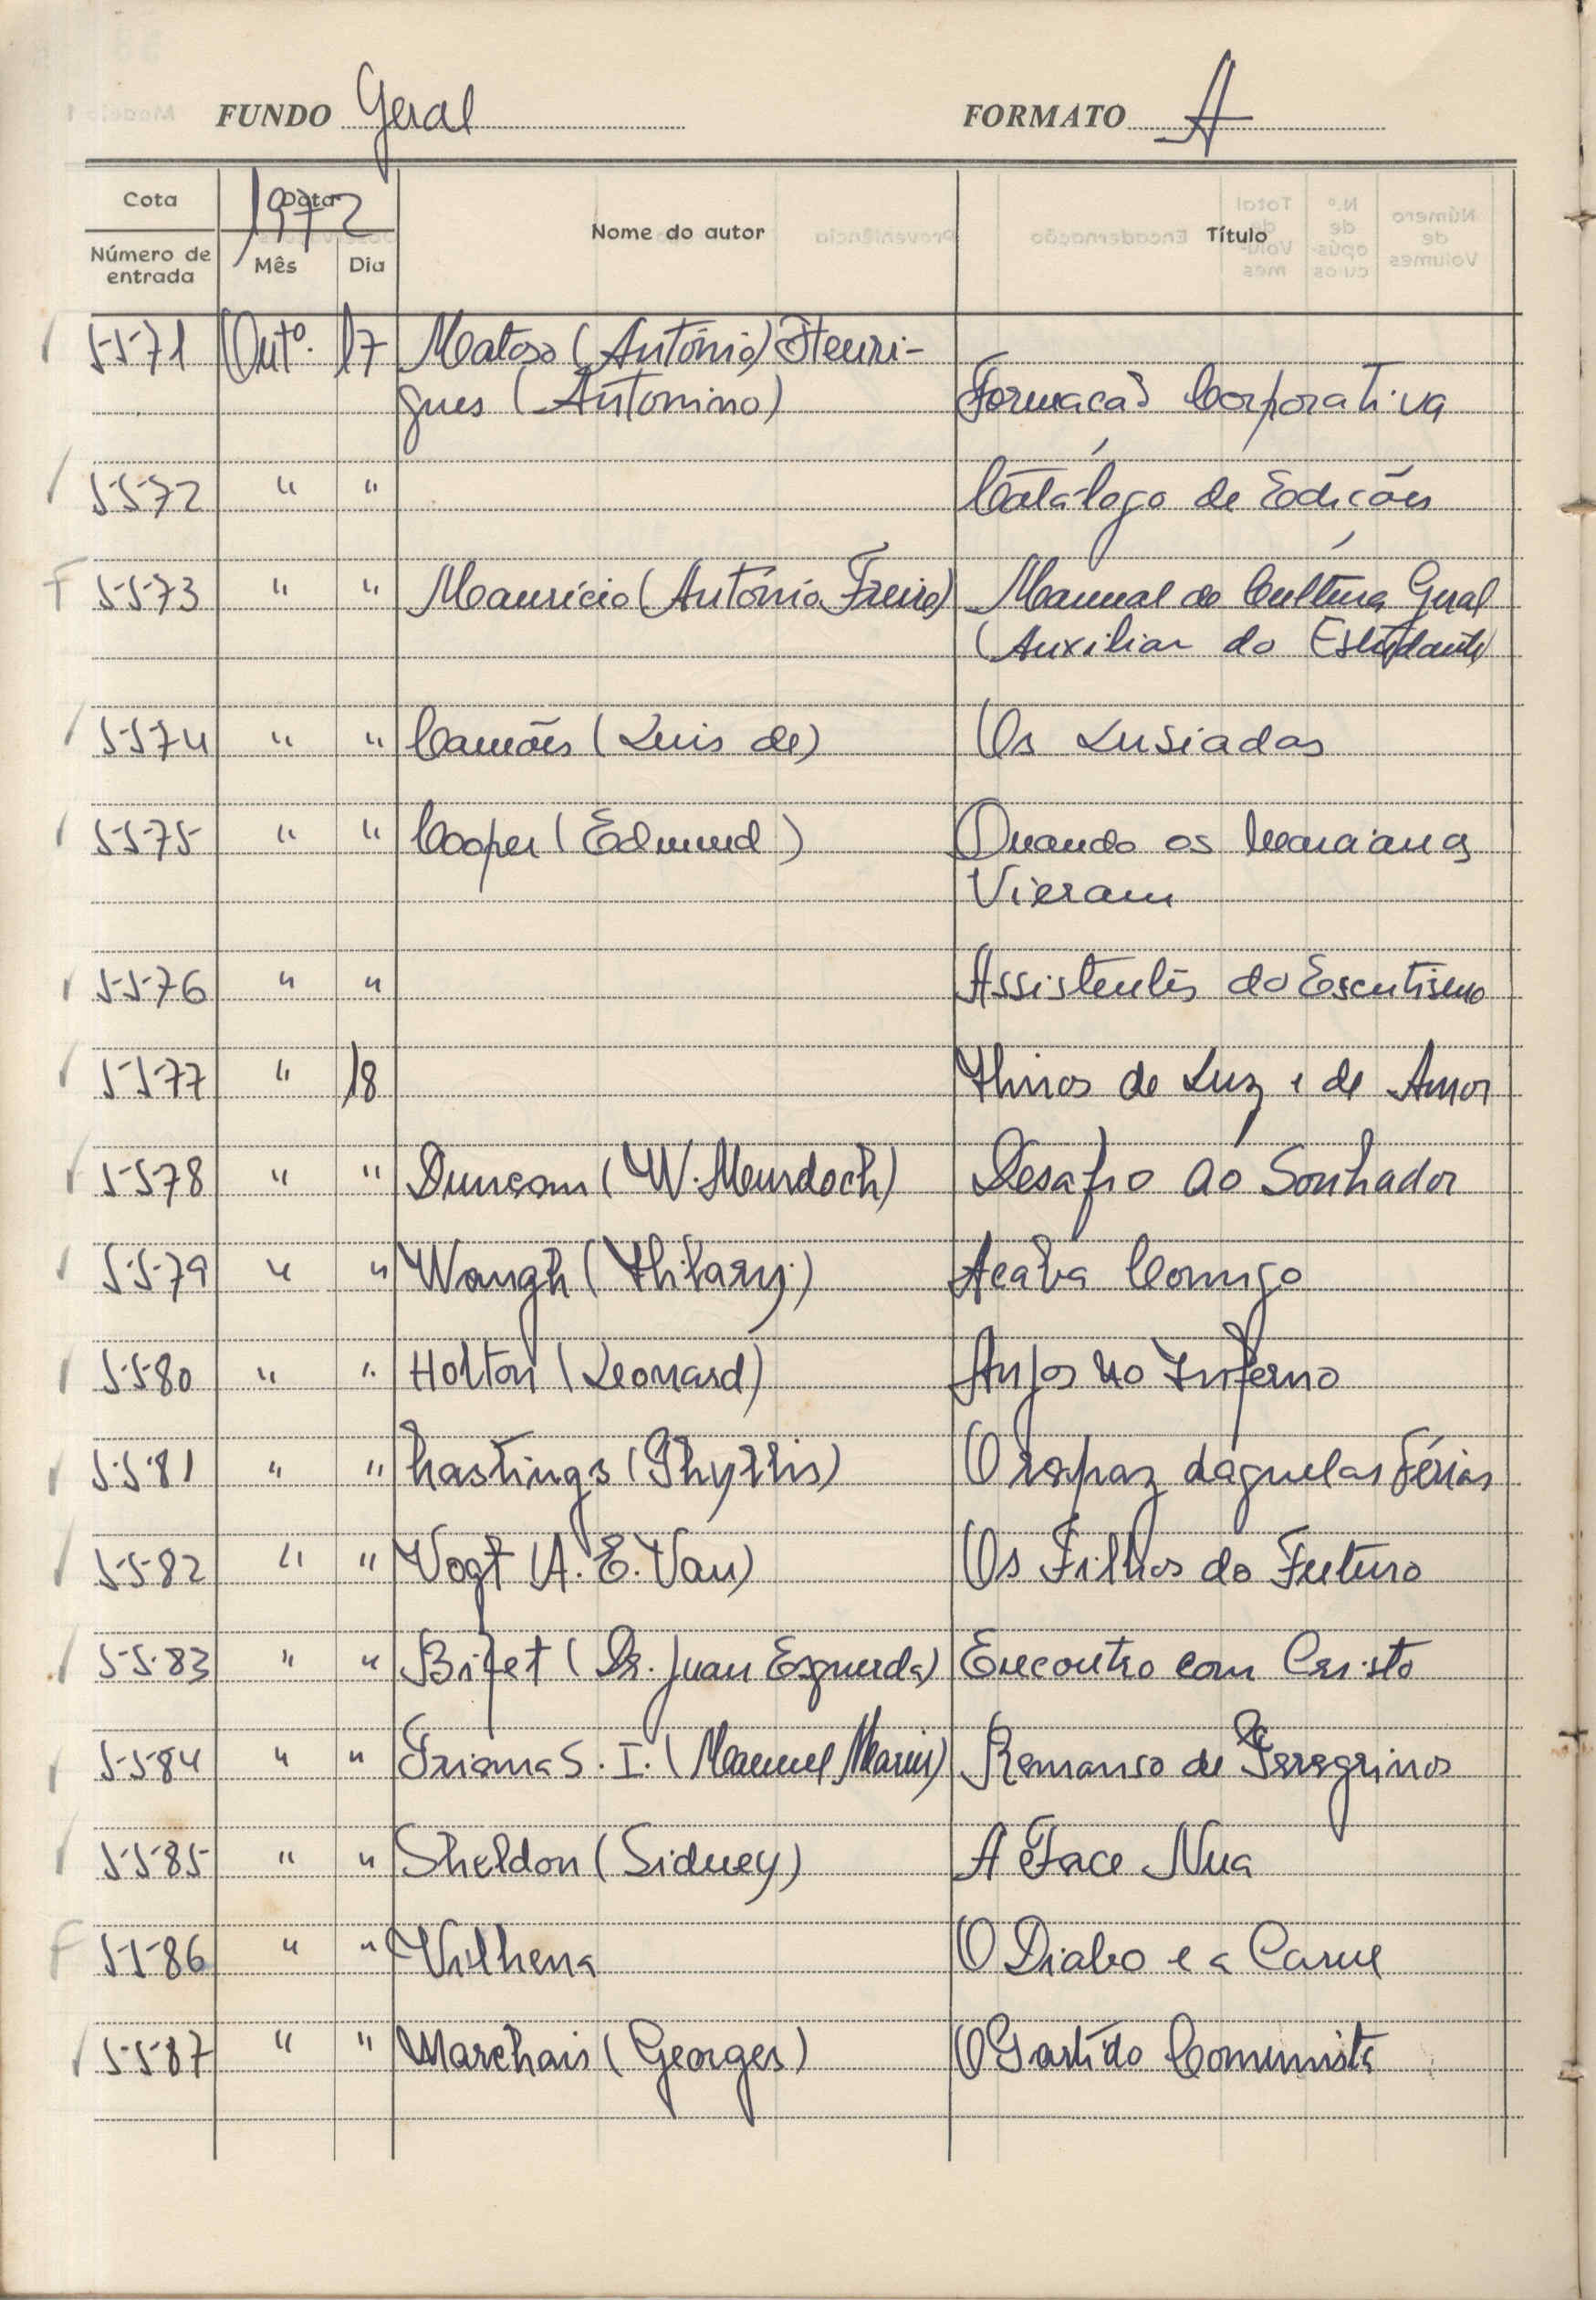 FUNDO Geral FORMATO A
Cota Data 1972 Nome do autor Título
Número de entrada Mês Dia
5571 Outº. 17 Matoso (António) Henri-
ques (Antonino) Formação Corporativa
5572 " " Catálogo de Edições
F 5573 " " Maurício (António Freire) Manual de Cultura Geral
(Auxiliar do Estudante)
5574 " " Camões (Luis de) Os Lusiadas
5575 " " Cooper (Edmund) Quando os
Vieram
5576 " " Assistentes do Escutismo
5577 " 18 Hinos de Luz e de Amor
5578 " " Duncan (W. Murdoch) Desafio ao Sonhador
5579 " " Waugh (Hilary) Acaba Comigo
5580 " " Holton (Leonard) Anjos no Inferno
5581 " " hastings (Phyllis) O rapaz daquelas férias
5582 " " Vogt (A. E. Van) Os Filhos do Futuro
5583 " " Bifet (Dr. Juan Esquerda) Encontro com Cristo
5584 " " Triana S. I. (Manuel Marin) Remanso de Peregrinos
5585 " " Sheldon (Sidney) A Face Nua
F 5586 " " Vilhena O Diabo e a Carne
5587 " " Marchais (Georges) O Partido Comunista